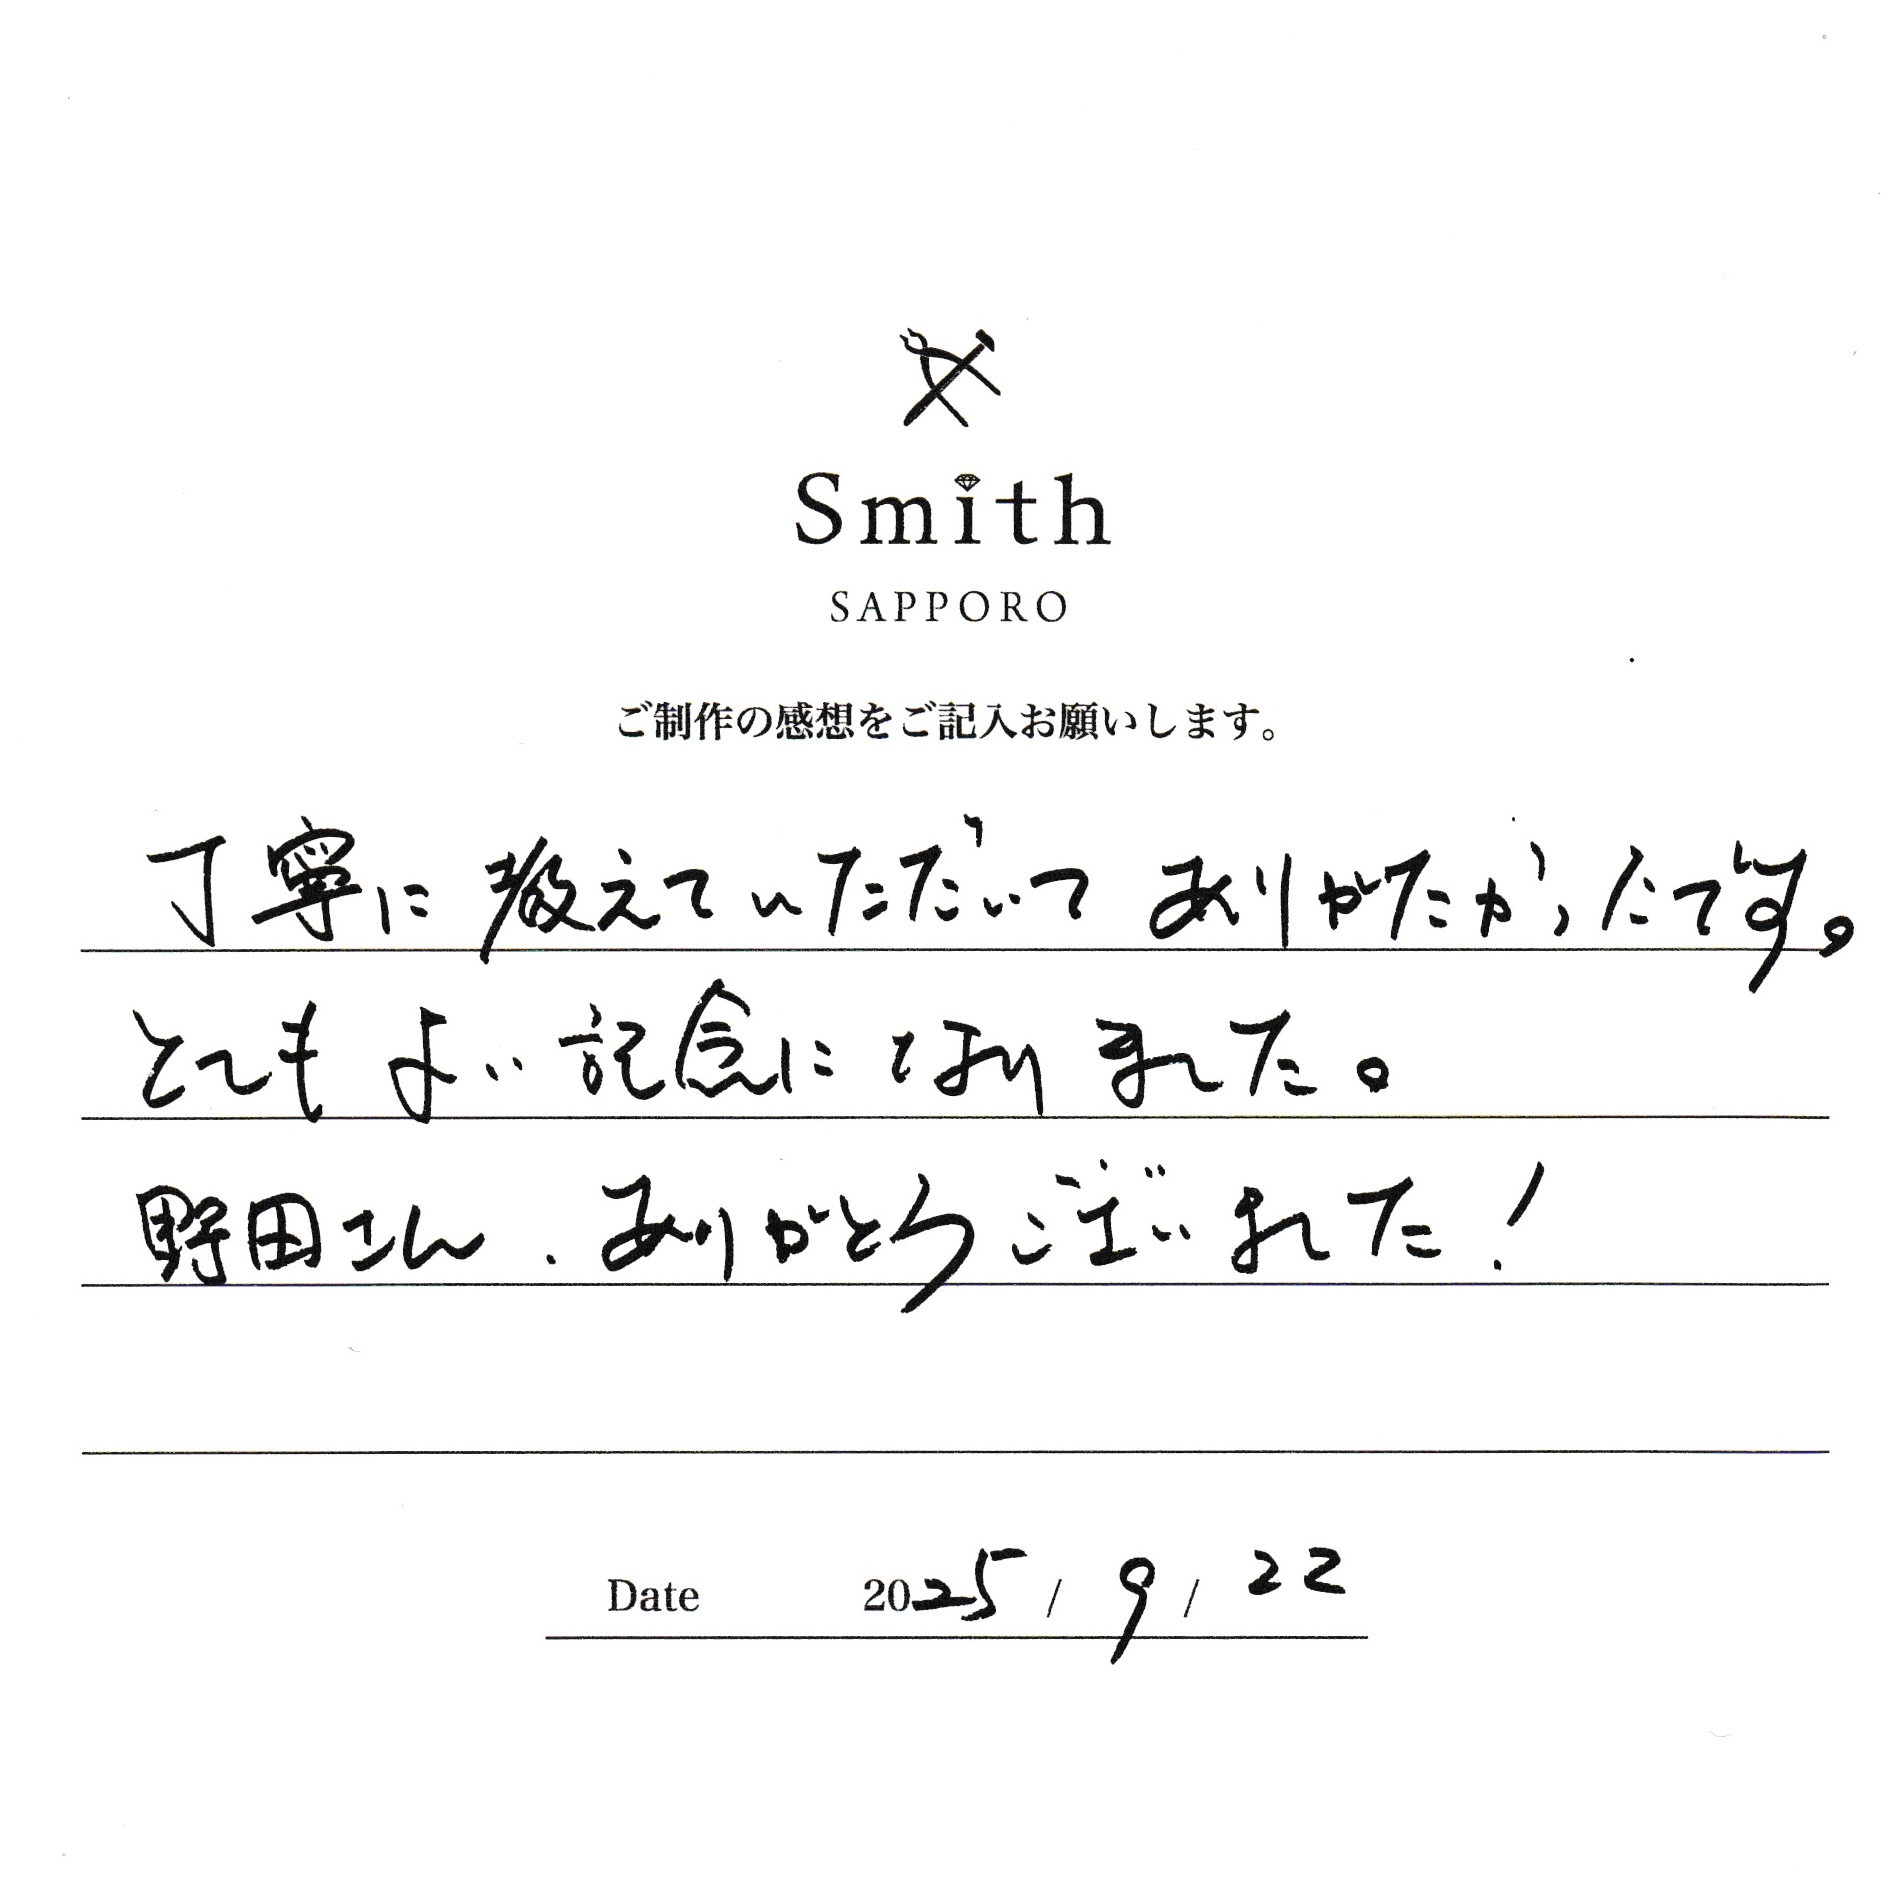 Smith
SAPPORO
ご制作の感想をご記入お願いします。
丁寧に教えていただいてありがたかったです。
とてもよい記念になりました。
野田さん、ありがとうございました!
Date 2025 / 9 / 22